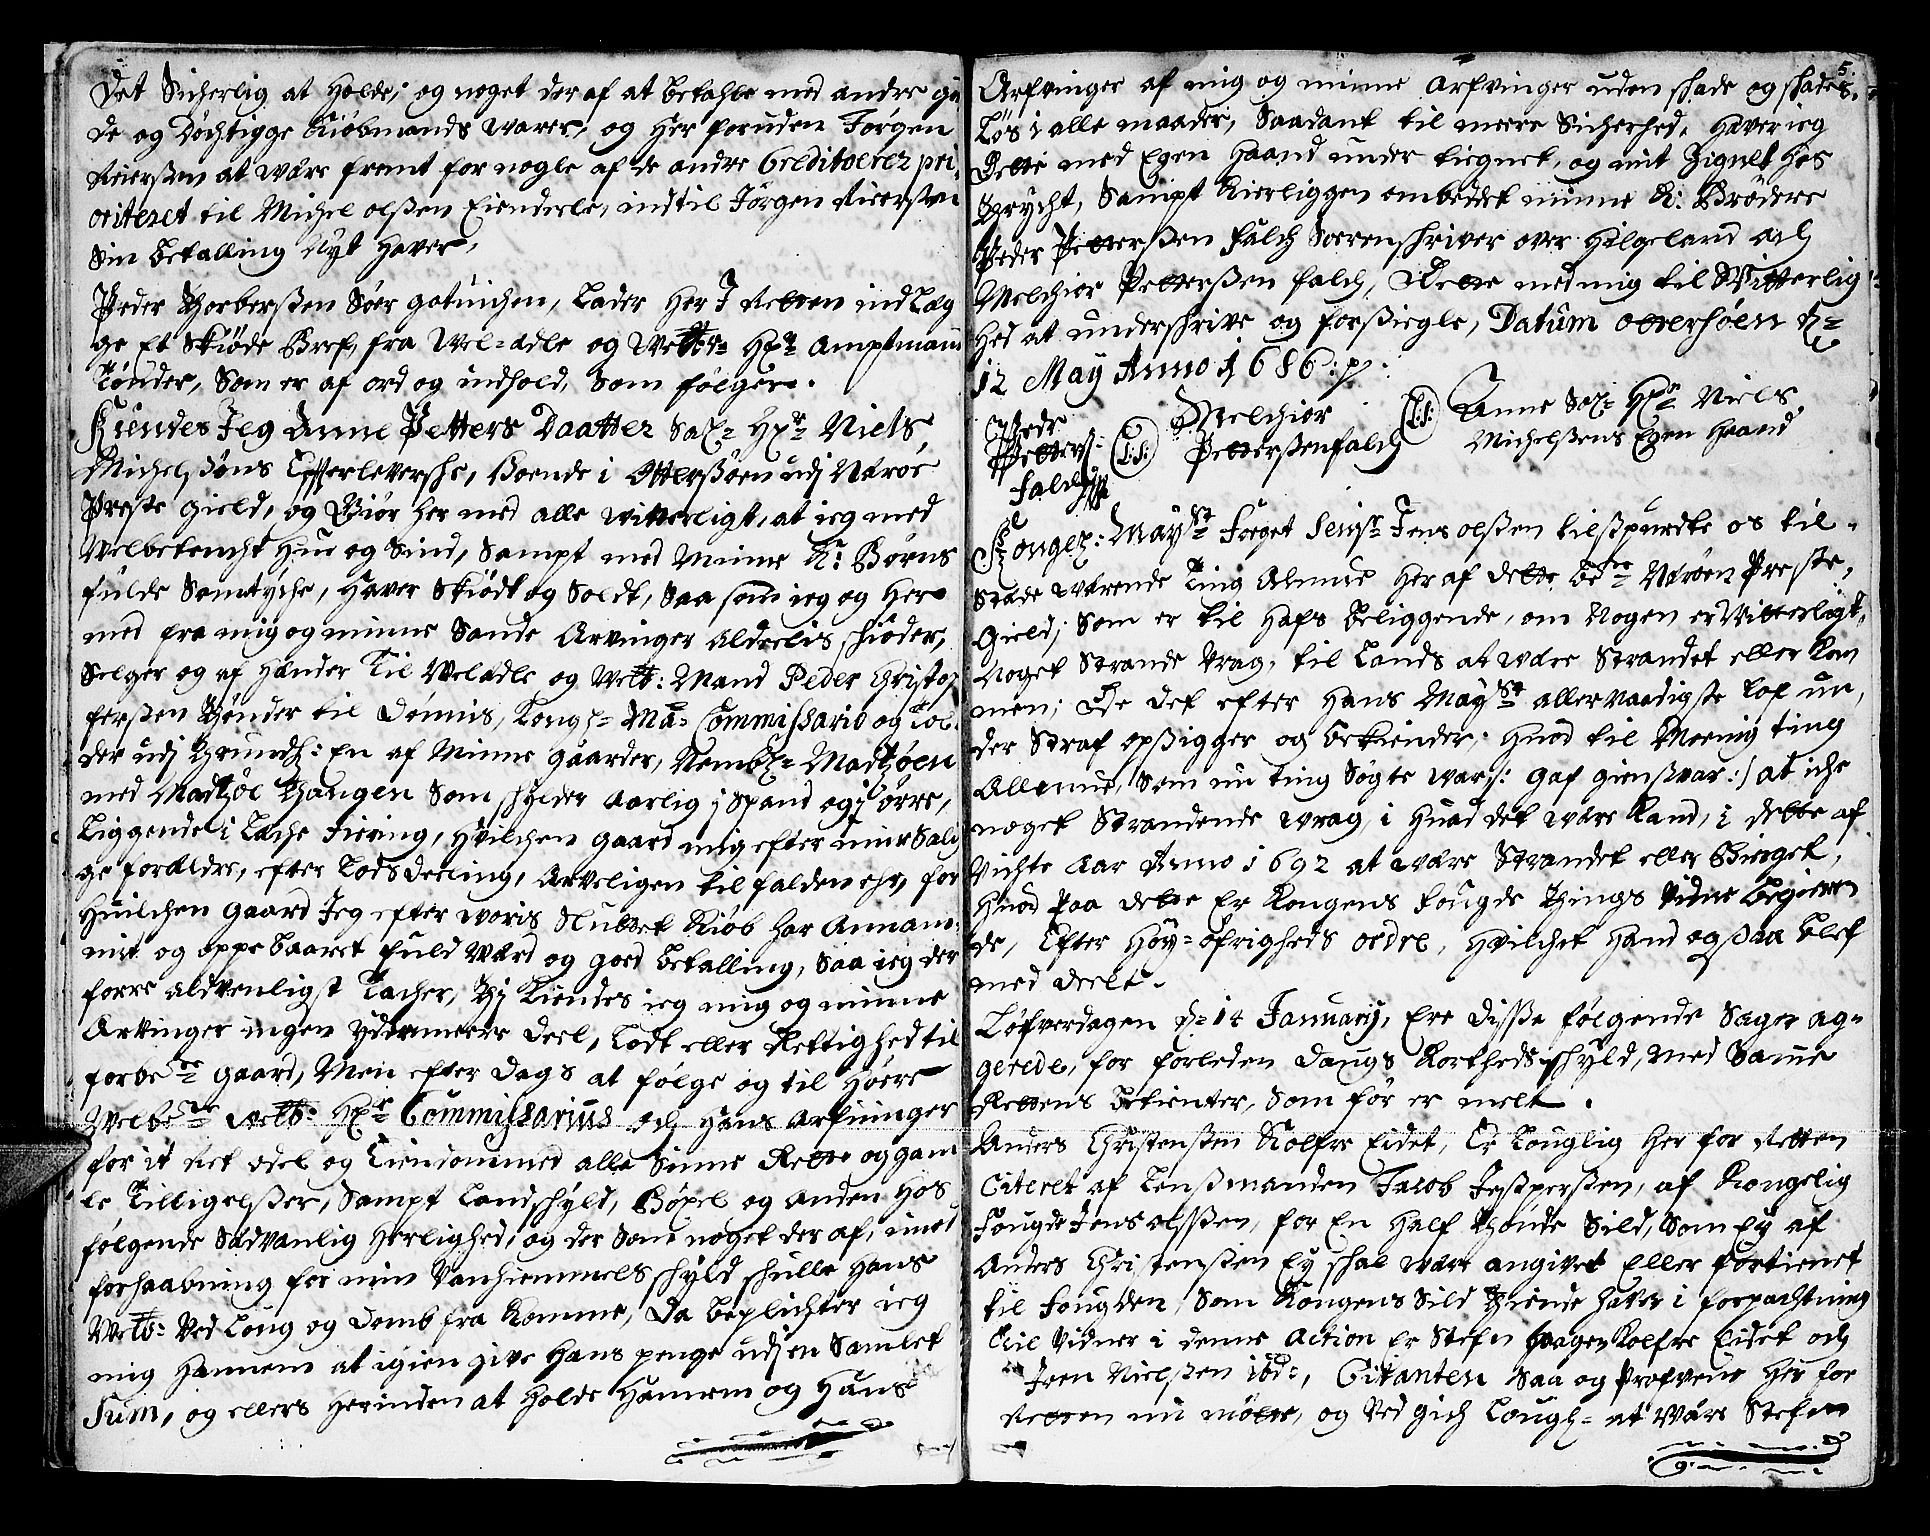 Det Sicherlig at Holde; og noget der af at betahle med andre gu
de og Döchtigge Kiöbmands warer, og Her foruden Jörgen
Reierßen at wære fremt for nogle af de andre Creditoerer pri
oriteret til Michel olßen Eienderle, indtil Jörgen Reierßen
Sin betalling Nyt Haver.
Peder Thorberßen Sör gotvichen, Lader Her I Retten ind Læg
ge Et Skiöde Bref, fra Wel-ædle og Welb: Hr: Amptmand
Tönder, Som er af ord og indhold, Som fölger.
Kiendes Jeg Anne Petters Daatter Sal: Hr: Niels
Michelßöns Efterleversche, Boende i Otterßöen udj Næröe
Preste gield, og Giör Her med alle witterligt, at ieg med
Velbetencht Hue og Sind, Sampt med Minne K: Börns
fulde Samtyche, Haver Skiödt og Soldt, Saa som ieg og Her
med fra mig og minne Sande Arvinger aldeelis schiöder,
Selger og af Hænder Til Velædle og Welb: Mand Peder Christop
ferßen Thönder til Dönnis, Kongl: Ma: Commissario og Tol
der udj Trundh: En af Minne gaarder, Nembl: Madsöen
med Madsöe Haugen Som schylder Aarlig j Spand og j örre,
Liggende i Lache Fiering, Hvilchen gaard mig efter mine Sali
ge forældre, efter Lodsdeeling, Arveligen til falden ehr, for
Huilchen gaard Jeg efter woris Sluttet Kiöb har Annam,
mit og oppebaaret fuld Værd og goed betalling, Saa ieg der
forre aldvenligst Tacher, Thj Kiendes ieg mig og minne
Arvinger ingen ydermeere Deel, Lodt eller Rettighed til
forbe:te gaard, Men efter Dags at fölge og til Höere
Velbe:te Welb: Hr: Commissarius och Hans Arfvinger
for it Ret odel og Eiendommed alle Sinne Rette og gam
le Tilligelßer, Sampt Landschyld, Böxel og anden Hos
fölgende Sædvanlig Herlighed, og der Som noget der af, imod
forhaabning for min Vanhiemmels schyld schulle Hans
Welb: Ved Loug og Domb fra Komme, Da beplichter ieg
mig Hannem at igien give Hans penge udj en Samlet
Sum, og ellers Herinden at Holde Hannem og Hans
5.
Arfvinger af mig og minne Arfvinger uden schade og schades.
Lös i alle maader, Saadant til meere Sicherhed, Haver ieg
Dette med Egen Haand under tegnet, og mit Zignet Hos
trycht, Sampt Kierliggen ombedet minne K: Brödere
Peder Petterßen falch Sorenschriver over Helgeland och
Melchior Petterßen falch, Dette med mig til Witterlig
Hed at underschrive og forßiegle, Datum otterßöen d:
12 May Anno 1686: p.
Peder
Petterß:
falch
(L:S:)
Melchior
Petterßenfalch
(L:S:)
Anne Sal: Hr: Niels
Michelßens Egen Haand
Kongel: Mayst: Foeget Seigr: Jens olßen tilßpurdte os til-
Stæde wærende Ting Almue Her af dette be:te Næröen Preste,
Gield, Som er til Hafs beliggende, om Nogen er Vitterligt,
Noget Strande Vrag, til Lands at wære Strandet eller Kom
men; De det efter Hans Mayst: allernaadigste Lof un,
der Straf opßigger og bekiender; Huod til Meenig ting
Allmue, Som nu ting Sögte war/: gaf gienßvar:/ at iche
noget Strandende wrag, i Huad det være Kand, i dette af
Vichte Aar Anno 1692 at være Strandet eller Bierget,
Huod Paa dette Er Kongens fougde Things Vidne begieren
de, Efter Höy-öfrigheds ordre, Hvilchet Hand ogsaa blef
med deelt.
Löfverdagen d: 14 Januarij, Ere Disse fölgende Sager ag-
gerede, for forleden Daugs Kortheds schyld, med Samme
Rettens betienter, Som för er melt.
Anders Christenßen Kolfre Eidet, Er Louglig Her for Retten
Citeret af Lenßmanden Jacob Jesperßen, af Kongelig
Fougde Jens olßen, for En Half Thönde Sild, Som Ey af
Anders Christenßen Ey schal være angivet Eller fortienet
til Fougden, Som Kongens Sild Thiende Haver i forpachtning
Til Vidner i denne Action Er Stefen Haagen Kolfre Eidet och
Joen Nielßen ibd:, Citanten Saa og Profvene Her for
Retten nu mötte, og Ved gich Lougl: at Være Stefen